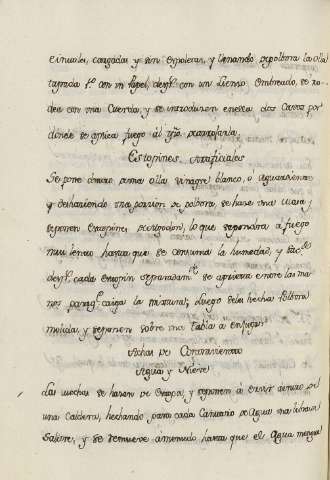 cargadas y sin espoletas, y llenando de polvora la olla
tapada pr. con un Papel, despr. con un Lienzo embreado, se ro-
dea con una Cuerda, y se introducen en ella dos Cavos por
donde se aplica fuego al tpo. de arrojarla.
Estopines Artificiales
Se pone dentro de una olla vinagre blanco, o aguardiente
y deshaciendo una porcion de polvora, se hace una masa y
se ponen Estopines de algodon, lo que se pondra a fuego
mui lento hasta que se consuma la humedad, y
despr. cada estopin separadamte. se aprieta entre las ma-
nos para qe. caiga la mistura; luego se le hecha Polvora
molida y se ponen sobre una tabla a enjugar
Achas de Contraviento
Agua y Nieve
Las mechas se hazen de Estopa, y se ponen à cocer dentro de
una Caldera, hechando para cada Cantaro de Agua una libra de
Salitre, y se remueve amenudo hasta que el Agua mengue